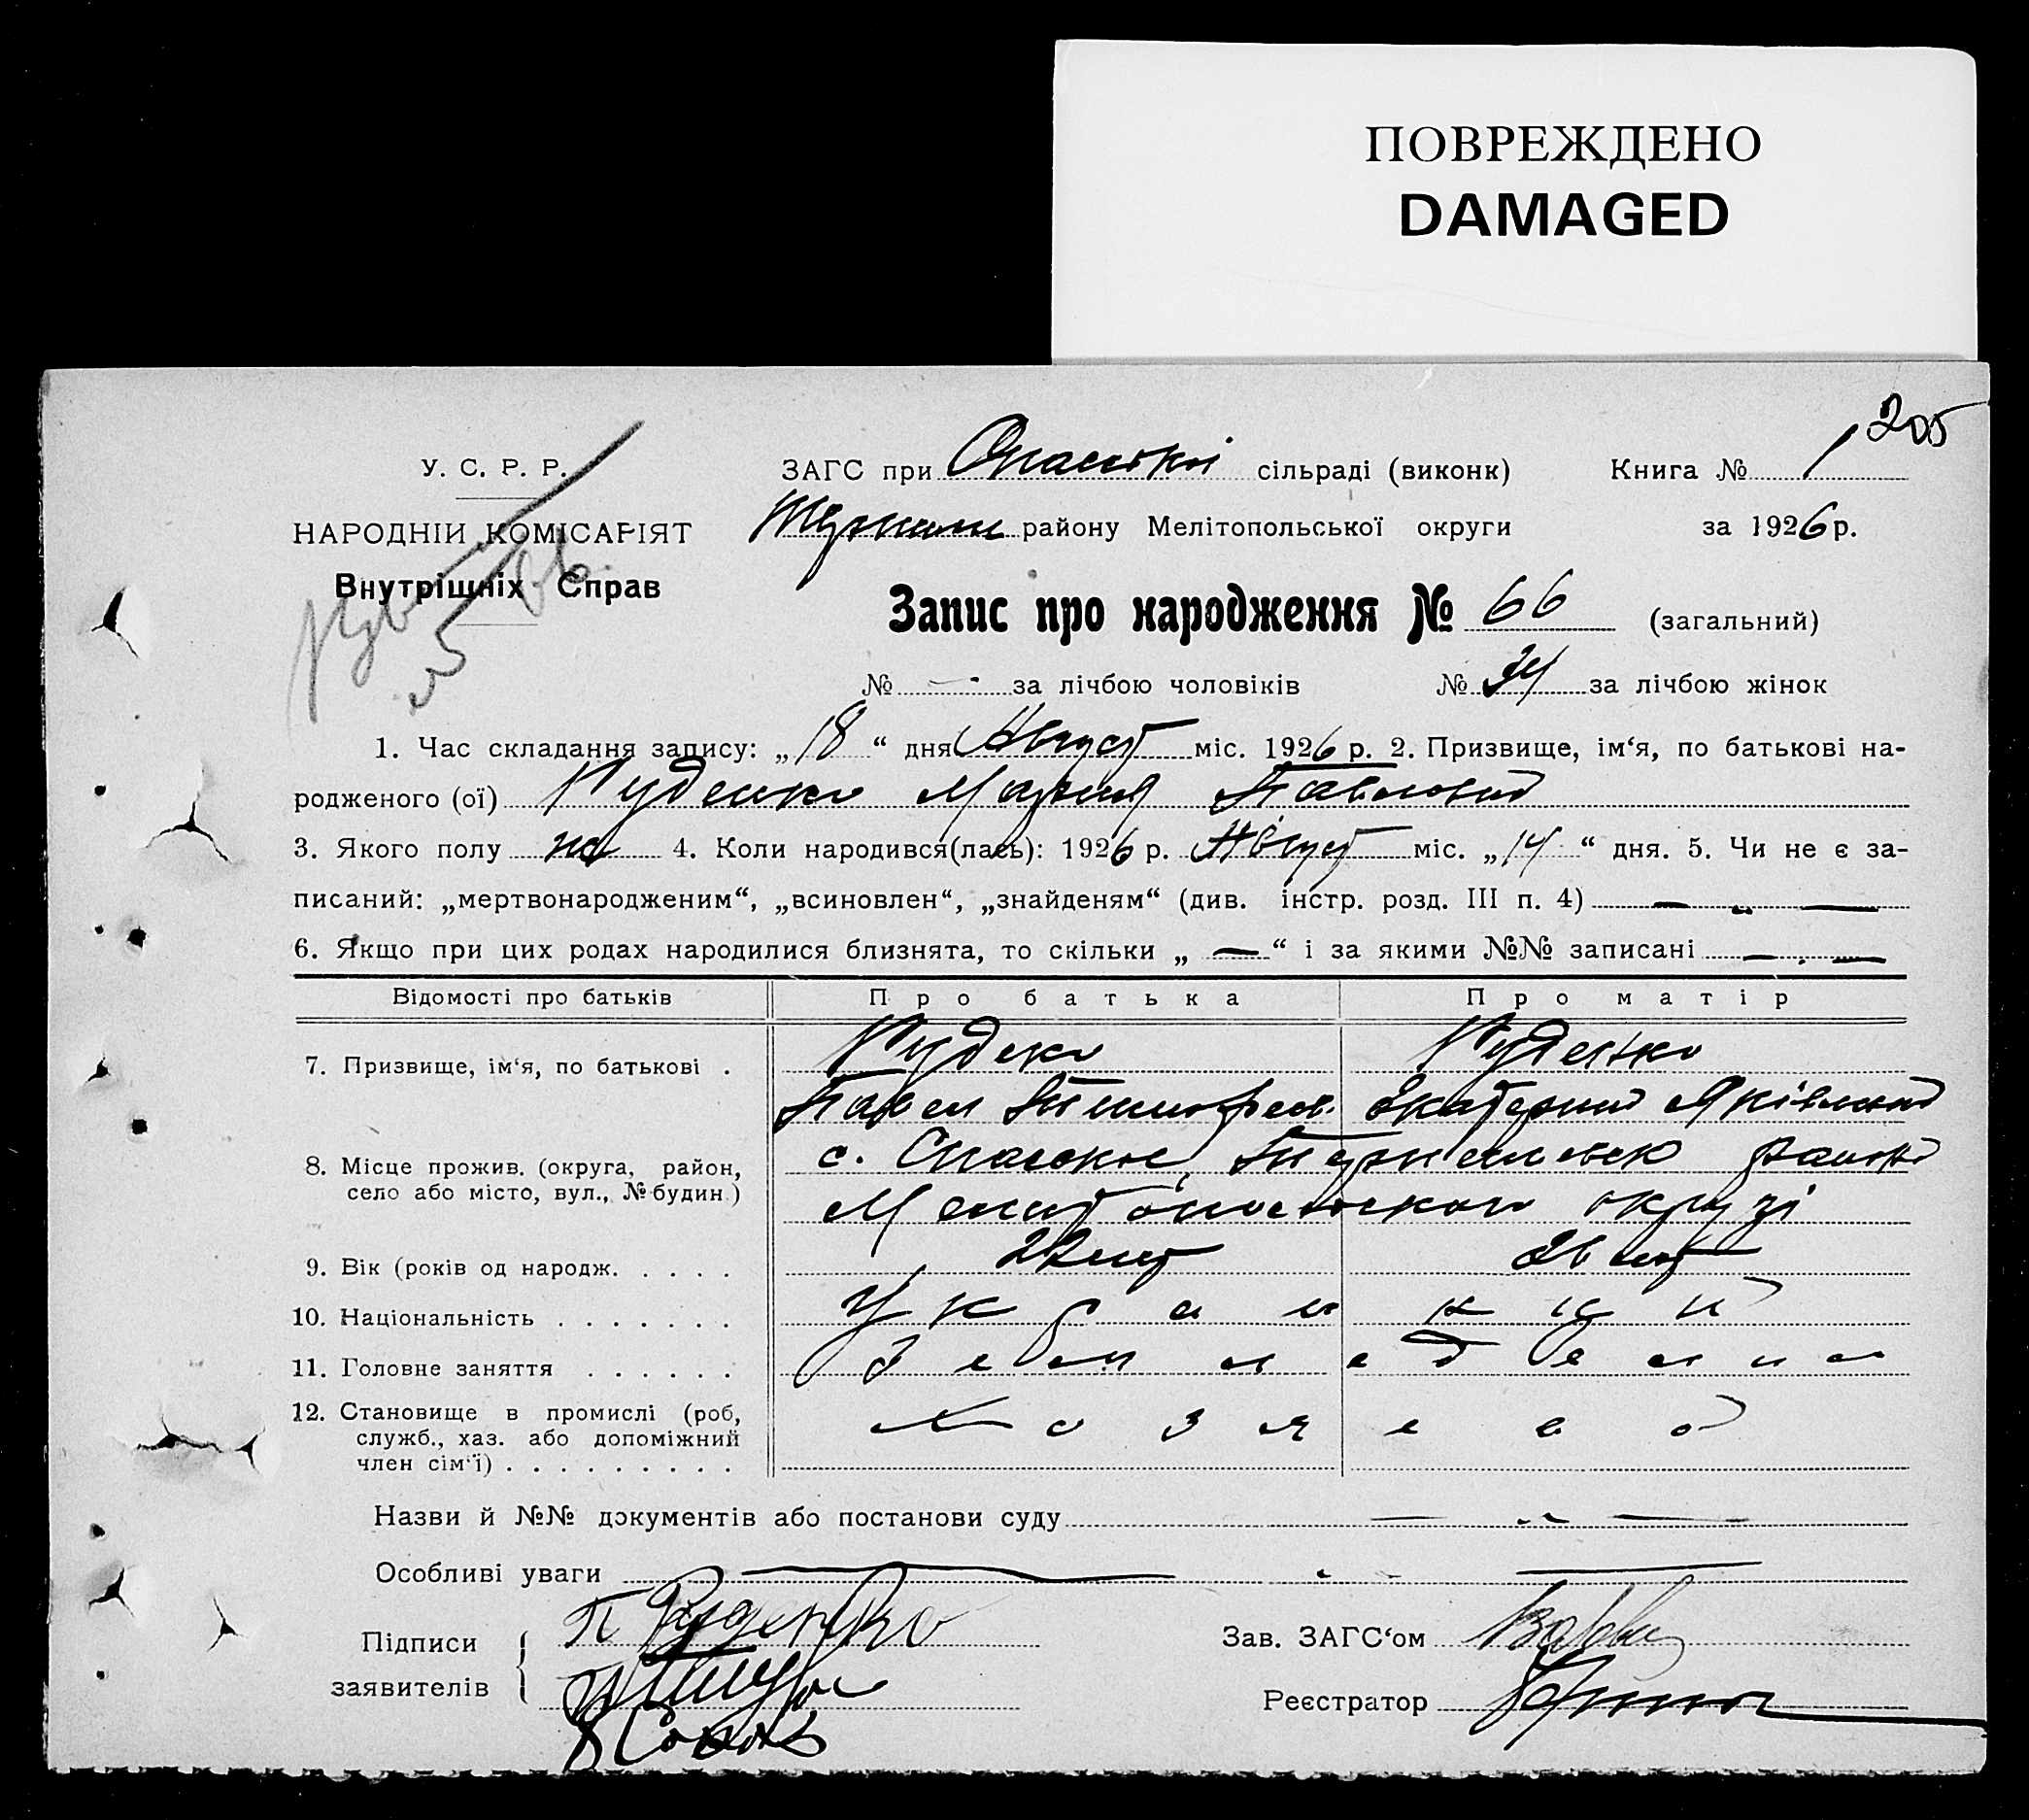 ПОВРЕЖДЕНО
DAMAGED
205
У. С. Р. Р.
НАРОДНІЙ КОМІСАРІЯТ
Внутрішніх Справ
ЗАГС при Спаській сільраді (виконк) Книга № 1
району Мелітопольської округи за 1926 р.
Запис про народження № 66 (загальний)
№ — за лічбою чоловіків № 34 за лічбою жінок
1. Час складання запису: „18“ дня Август міс. 1926 р. 2. Призвище, ім‘я, по батькові на-
родженого (ої) Руденко Мария Павловна
3. Якого полу 4. Коли народився(лась): 1926 р. Август міс. „14“ дня. 5. Чи не є за-
писаний: „мертвонародженим“, „всиновлен“, „знайденям“ (див. інстр. розд. III п. 4) — „ —
6. Якщо при цих родах народилися близнята, то скільки „ — “ і за якими №№ записані — . —
Відомості про батьків Про батька Про матір
7. Призвище, ім‘я, по батькові . Рудеко Руденко
Павел Тимофеев. Екатерина Яківлевна
8. Місце прожив. (округа, район, село або місто, вул., № будин.) с. Спаское, району
Мелитопольского окрузі
9. Вік (років од народж. . . . . 22 лет 26 лет
10. Національність . . . . . . . Украинцы
11. Головне заняття . . . . . . земледелие
12. Становище в промислі (роб,
служб., хаз. або допоміжний
член сім‘ї) . . . . . . . . .
Назви й №№ документів або постанови суду — „ —
Особливі уваги — „ —
П Руденко
Підписи
заявителів
Зав. ЗАГС‘ом
Реєстратор